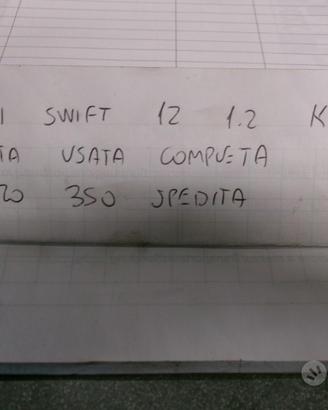 I SWIFT 12 1.2 K
TA USATA COMPLETA
20 350 SPEDITA